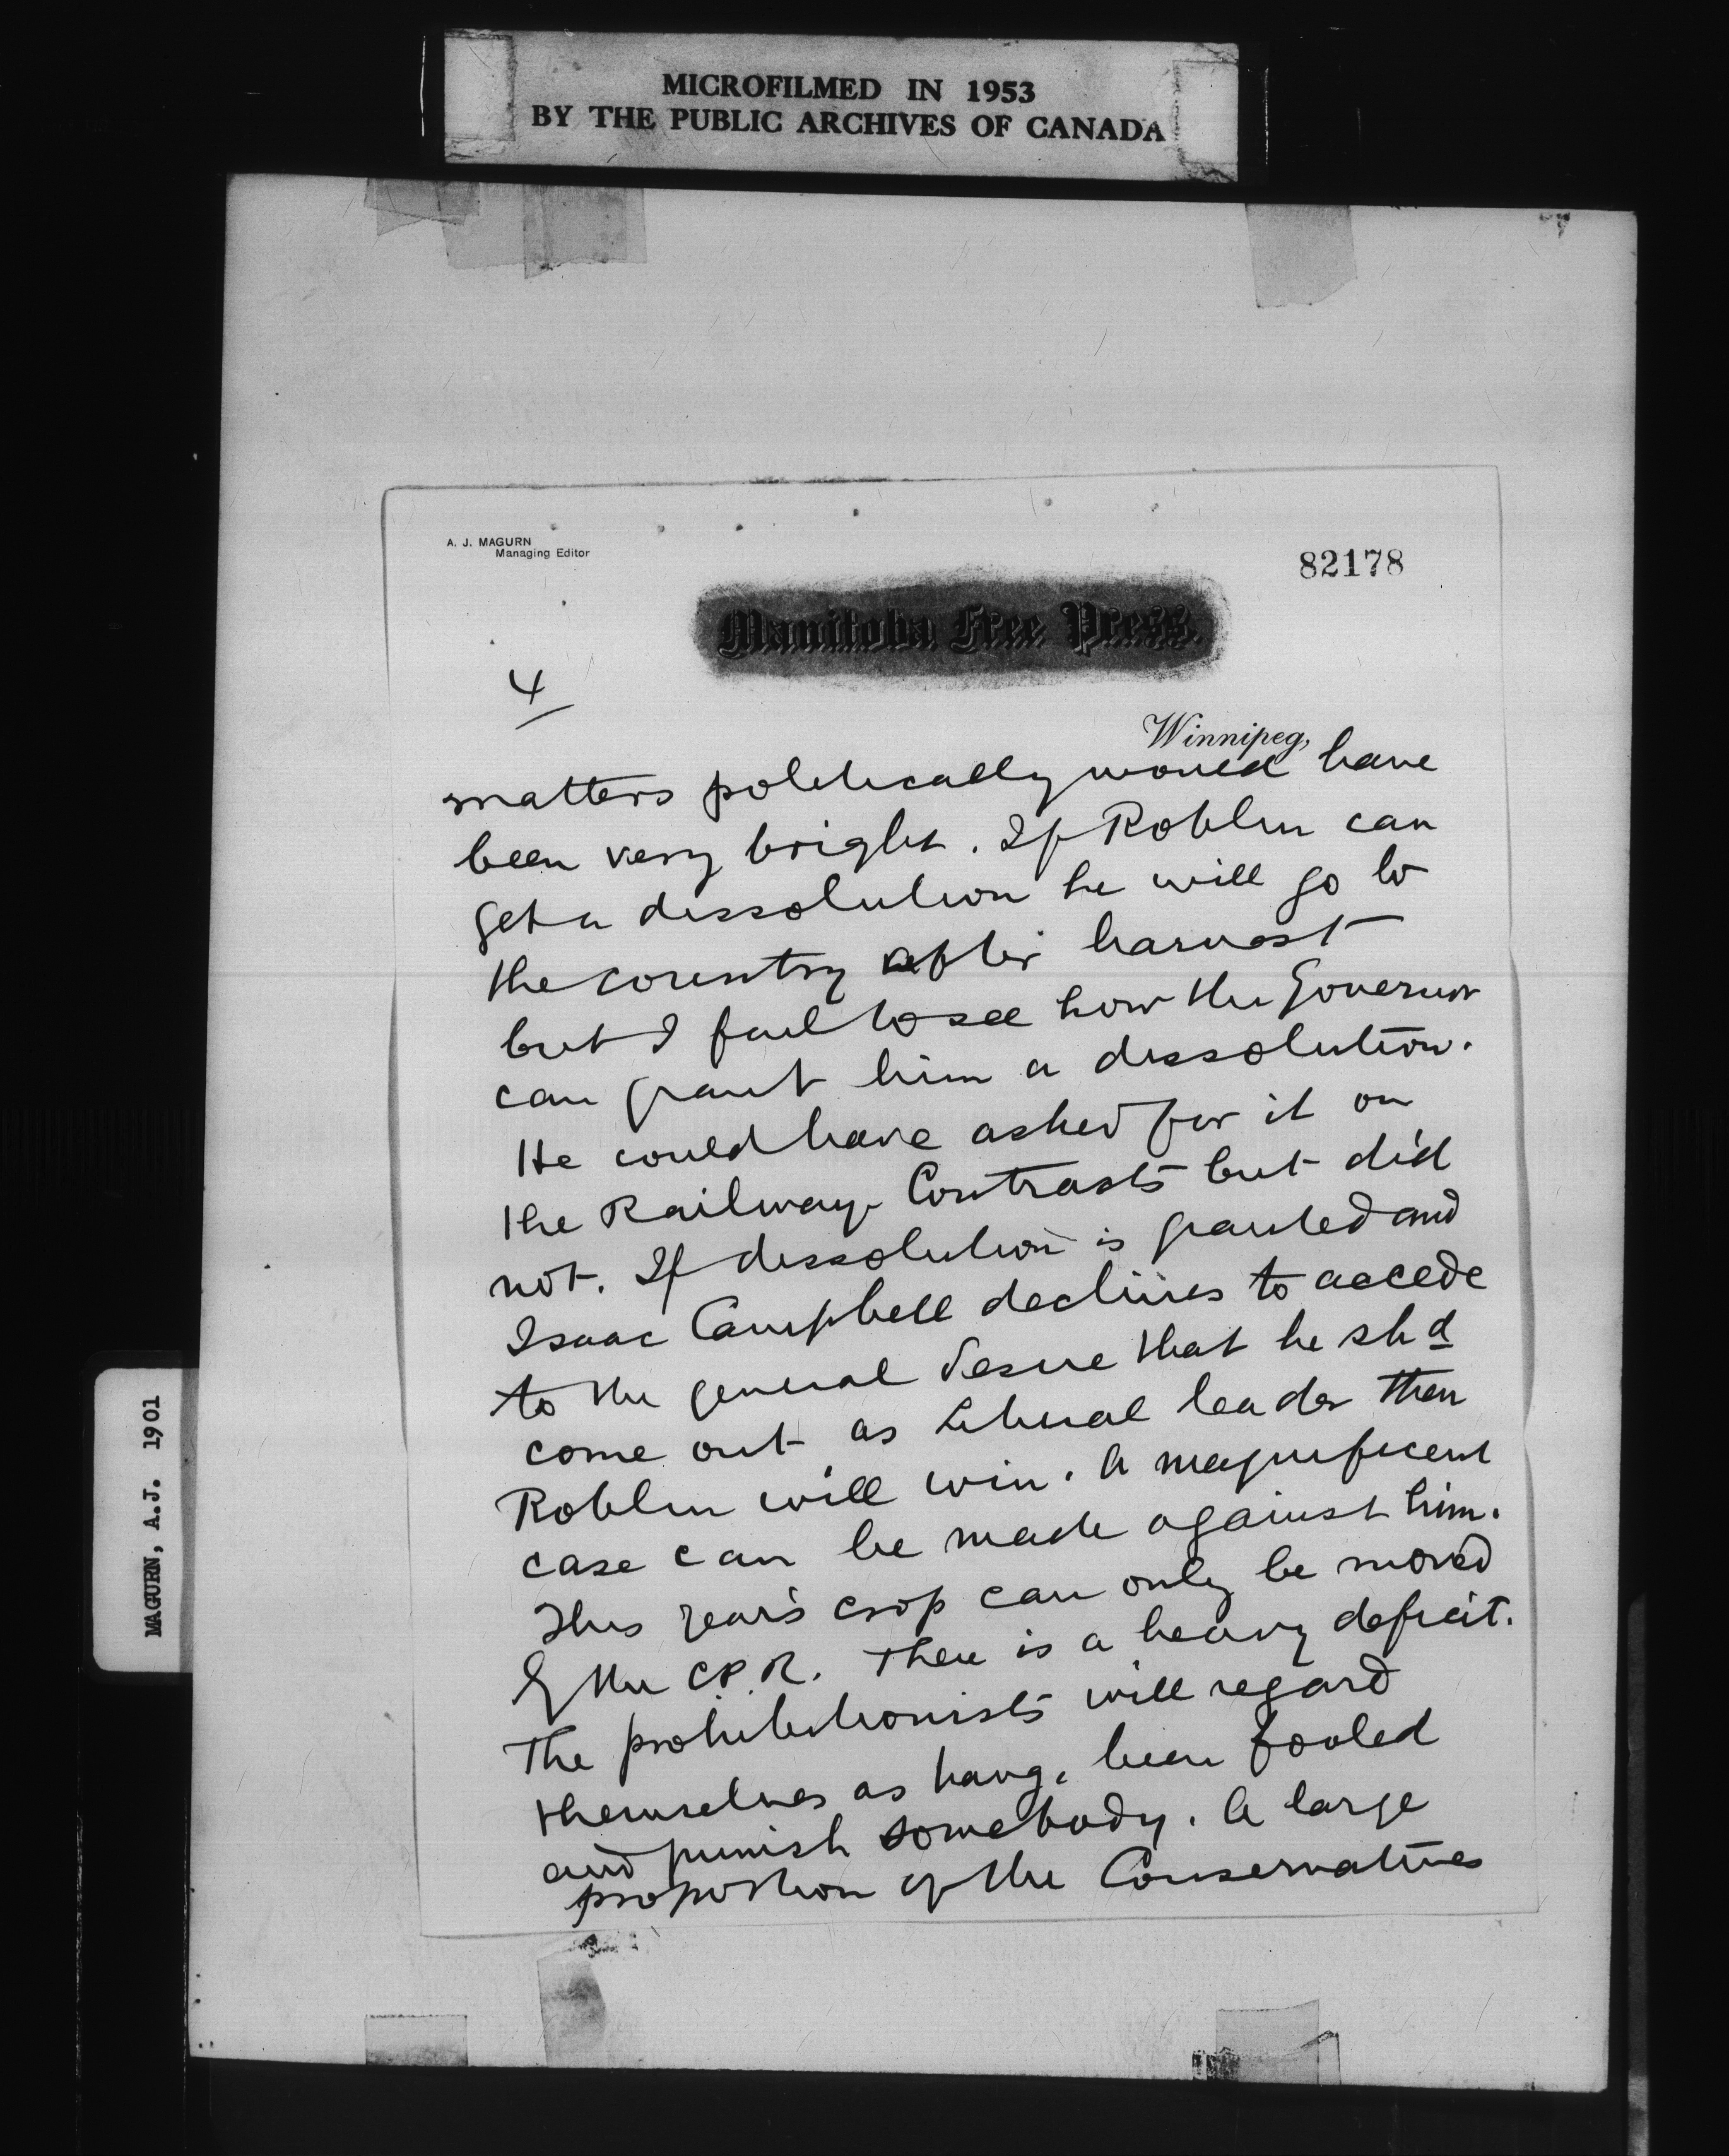 MICROFILMED IN 1953
BY THE PUBLIC ARCHIVES OF CANADA
A. J. MAGURN
Managing Editor
82178
Manitoba Free Press.
4
Winnipeg,
matters politically would have
been very bright. If Roblin can
get a dissolution he will go to
the country after harvest
but I fail to see how the Governor
can grant him a dissolution.
He could have asked for it on
the Railway Contracts but did
not. If dissolution is granted and
Isaac Campbell declines to accede
to the general desire that he shd
come out as Liberal leader then
Roblin will win. A magnificent
case can be made against him.
This year's crop can only be moved
by the C.P.R. There is a heavy deficit.
The prohibitionists will regard
themselves as havg. been fooled
and punish somebody. A large
proportion of the Conservatives
MAGURN, A.J. 1901